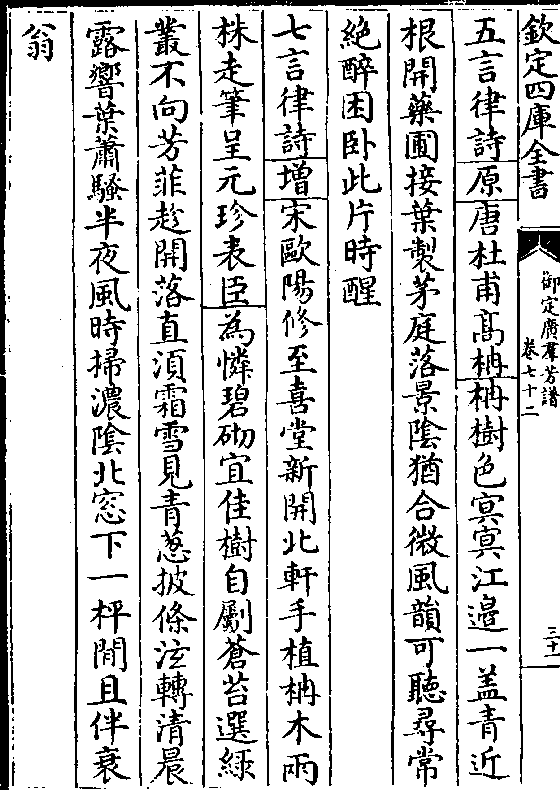 欽定四庫全書
御定廣羣芳譜
卷七十二
三十一
五言律詩原唐杜甫高柟柟樹色冥冥江邉一盖青近
根開藥圃接葉製茅庭落景陰猶合微風韻可聽尋常
絶醉困卧此片時醒
七言律詩增宋歐陽修至喜堂新開北軒手植柟木兩
株走筆呈元珍表臣為憐碧砌宜佳樹自斸蒼苔選緑
叢不向芳菲趂開落直須霜雪見青葱披條泫轉清晨
露響葉蕭騷半夜風時掃濃陰北窓下一枰閒且伴衰
翁